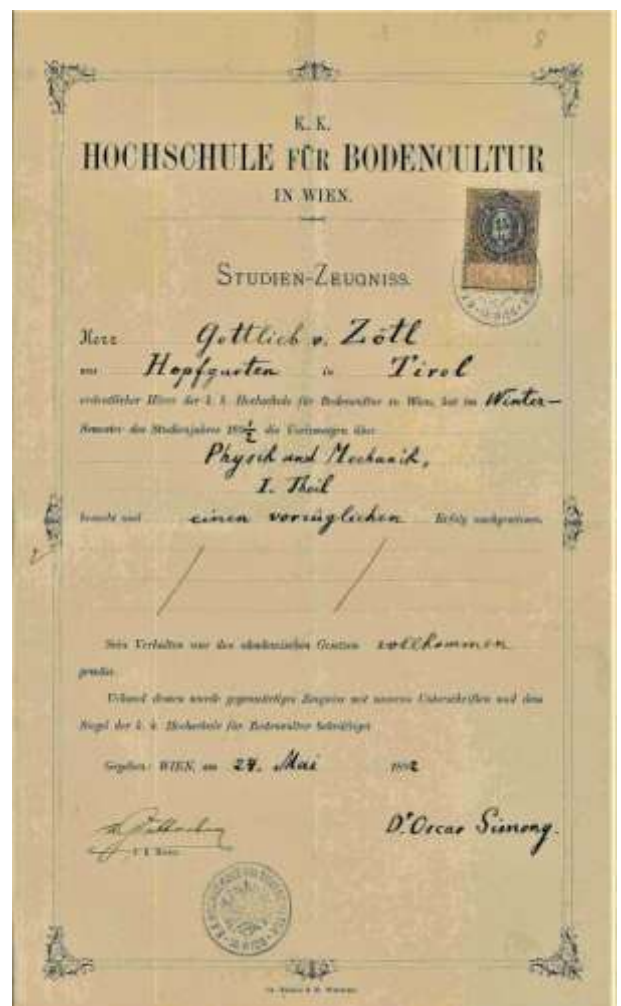 K. K.
HOCHSCHULE FÜR BODENCULTUR
IN WIEN.
STUDIEN-ZEUGNISS.
Herr Gottlieb v. Zötl
aus Hopfgarten in Tirol
ordentlicher Hörer der k. k. Hochschule für Bodencultur in Wien, hat im Winter-
Semester des Studienjahres 188½ die Vorlesungen über
Physik und Mechanik,
I. Theil
besucht und einen vorzüglichen Erfolg nachgewiesen.
Sein Verhalten war den akademischen Gesetzen vollkommen
gemäss.
Urkund dessen wurde gegenwärtiges Zeugniss mit unseren Unterschriften und dem
Siegel der k. k. Hochschule für Bodencultur bekräftiget.
Gegeben: WIEN, am 24. Mai 1882
Dr Oscar Simony.